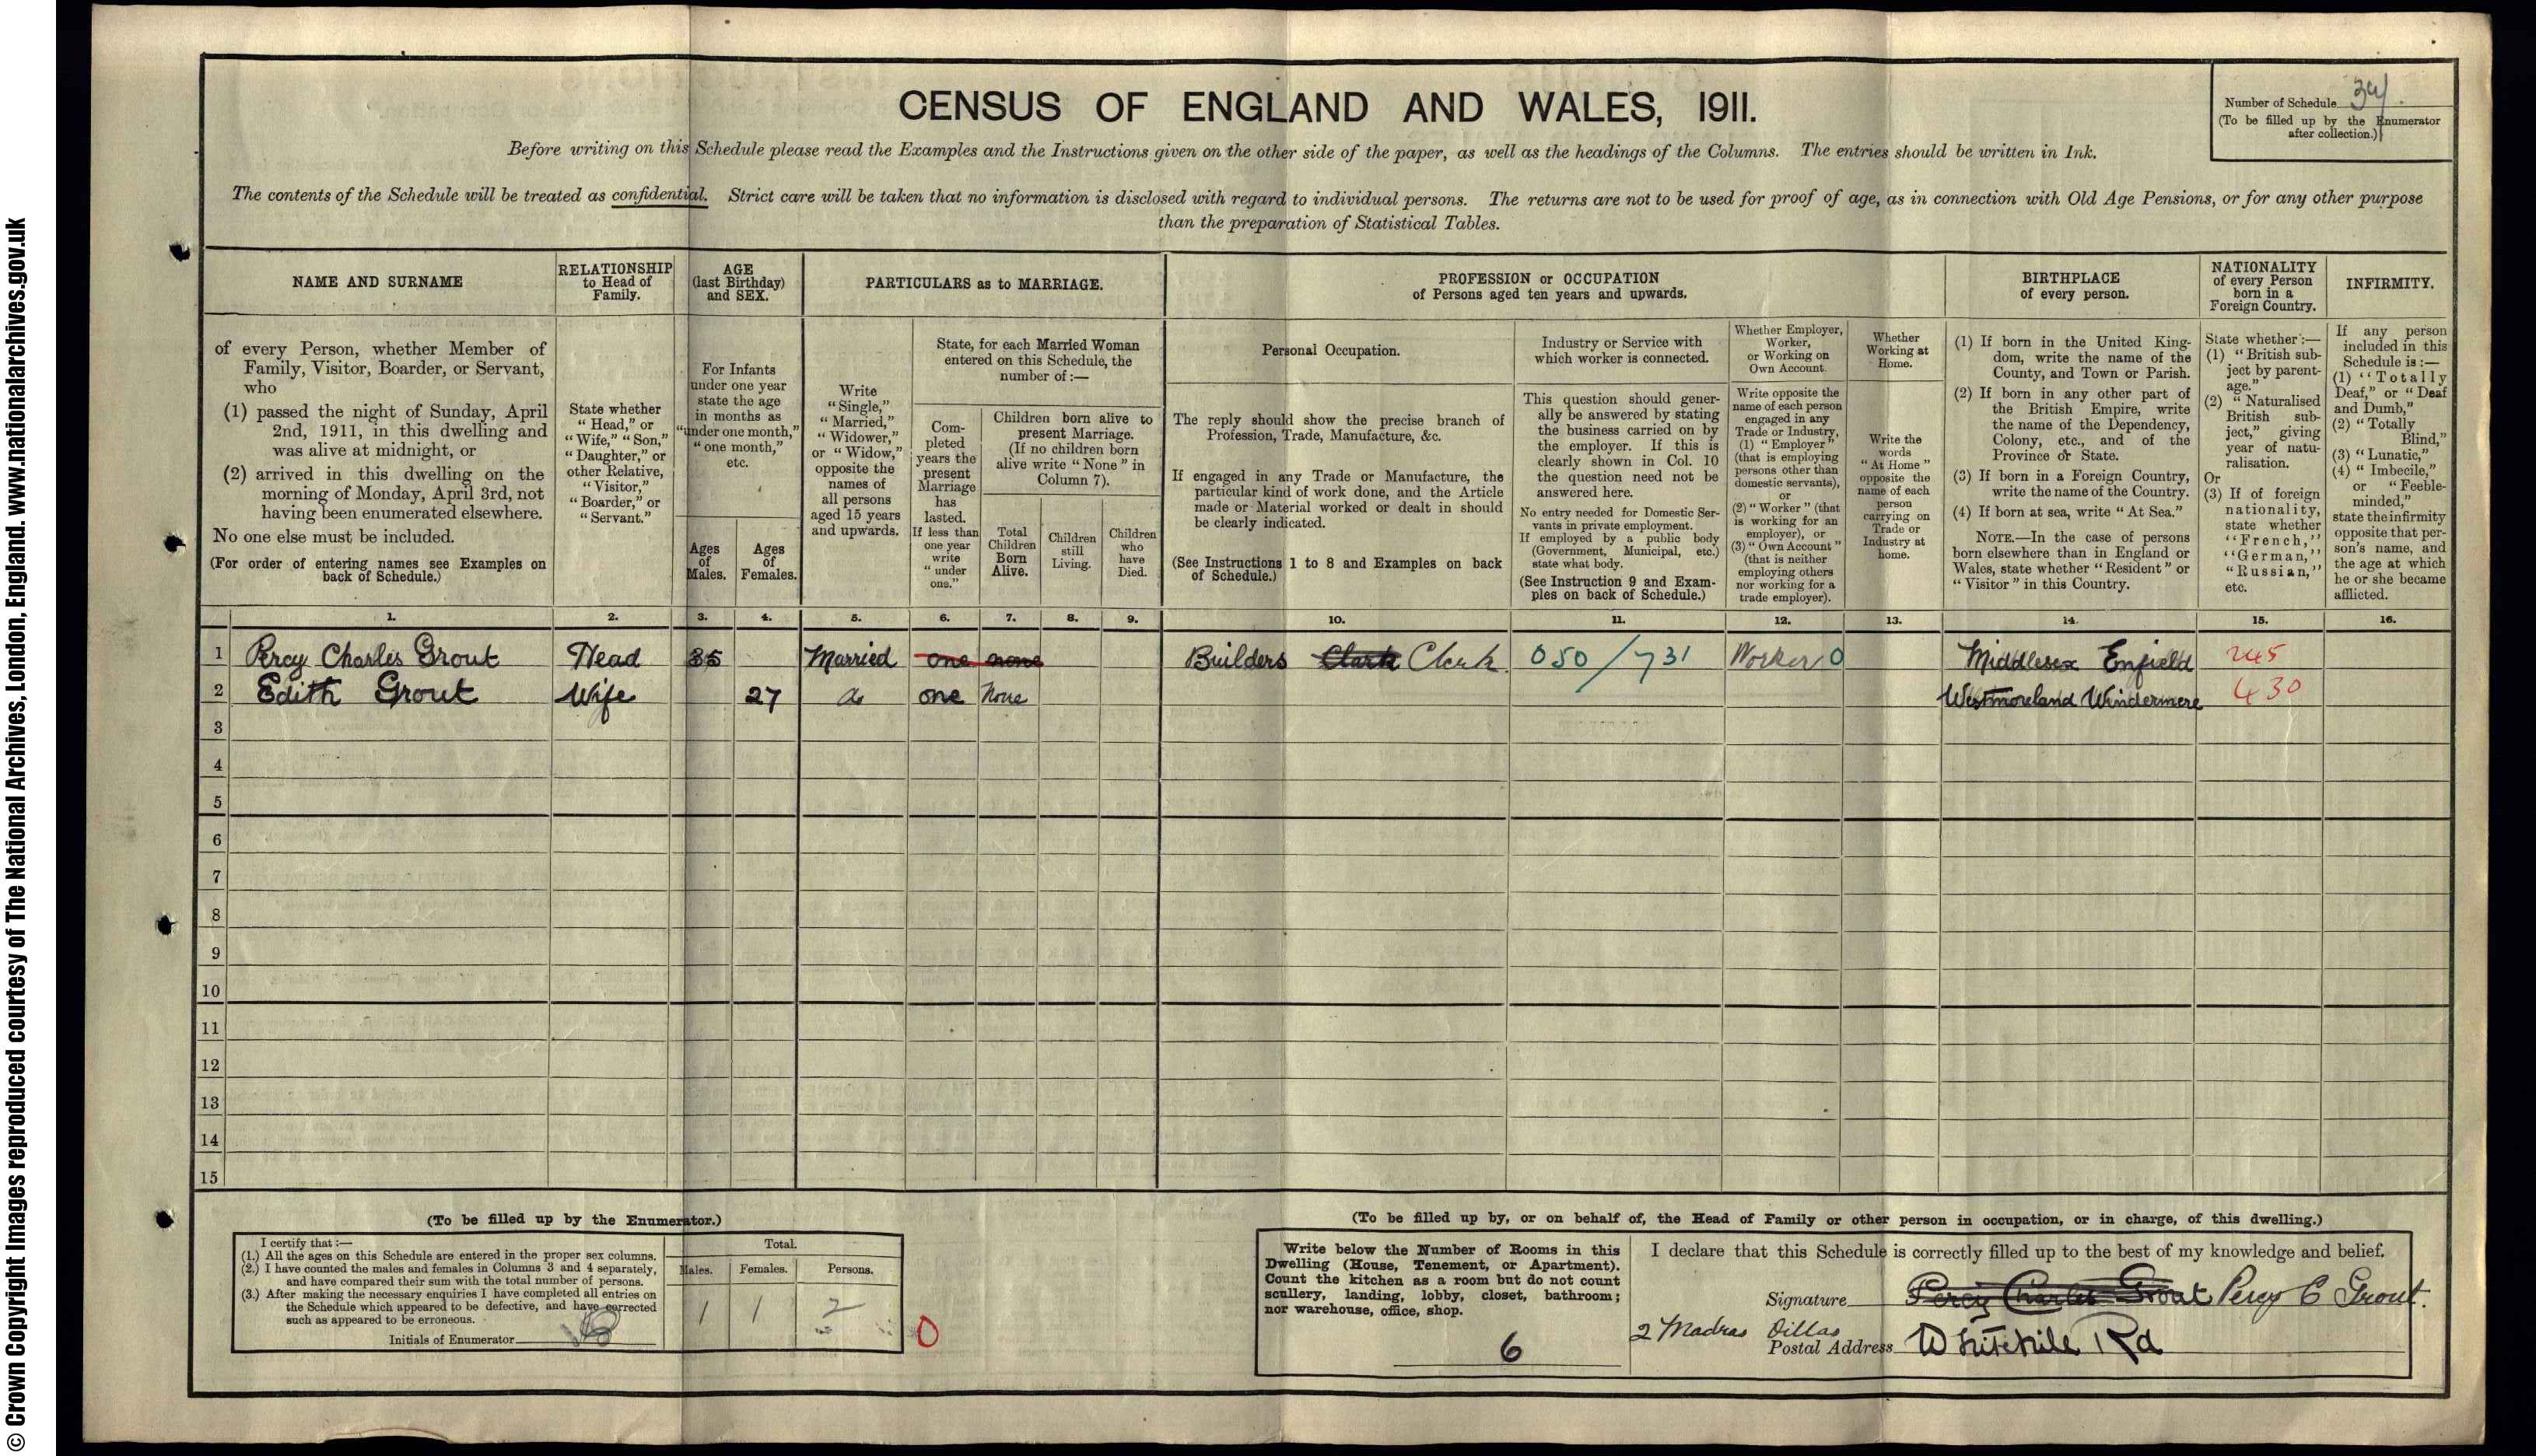 © Crown Copyright Images reproduced courtesy of The National Archives, London, England. www.nationalarchives.gov.uk
CENSUS OF ENGLAND AND WALES, 1911.
Number of Schedule 34
(To be filled up by the Enumerator
after collection.)
Before writing on this Schedule please read the Examples and the Instructions given on the other side of the paper, as well as the headings of the Columns. The entries should be written in Ink.
The contents of the Schedule will be treated as confidential. Strict care will be taken that no information is disclosed with regard to individual persons. The returns are not to be used for proof of age, as in connection with Old Age Pensions, or for any other purpose
than the preparation of Statistical Tables.
NAME AND SURNAME
of every Person, whether Member of
Family, Visitor, Boarder, or Servant,
who
(1) passed the night of Sunday, April
2nd, 1911, in this dwelling and
was alive at midnight, or
(2) arrived in this dwelling on the
morning of Monday, April 3rd, not
having been enumerated elsewhere.
No one else must be included.
(For order of entering names see Examples on
back of Schedule.)
RELATIONSHIP
to Head of
Family.
State whether
"Head," or
"Wife," "Son,"
"Daughter," or
other Relative,
"Visitor,"
"Boarder," or
"Servant."
AGE
(last Birthday)
and SEX.
For Infants
under one year
state the age
in months as
"under one month,"
"one month,"
etc.
Ages
of
Males.
Ages
of
Females.
PARTICULARS as to MARRIAGE.
Write
"Single,"
"Married,"
"Widower,"
or "Widow,"
opposite the
names of
all persons
aged 15 years
and upwards.
State, for each Married Woman
entered on this Schedule, the
number of:—
Com-
pleted
years the
present
Marriage
has
lasted.
If less than
one year
write
"under
one."
Children born alive to
present Marriage.
(If no children born
alive write "None" in
Column 7).
Total
Children
Born
Alive.
Children
still
Living.
Children
who
have
Died.
PROFESSION or OCCUPATION
of Persons aged ten years and upwards.
Personal Occupation.
The reply should show the precise branch of
Profession, Trade, Manufacture, &c.
If engaged in any Trade or Manufacture, the
particular kind of work done, and the Article
made or Material worked or dealt in should
be clearly indicated.
(See Instructions 1 to 8 and Examples on back
of Schedule.)
Industry or Service with
which worker is connected.
This question should gener-
ally be answered by stating
the business carried on by
the employer. If this is
clearly shown in Col. 10
the question need not be
answered here.
No entry needed for Domestic Ser-
vants in private employment.
If employed by a public body
(Government, Municipal, etc.)
state what body.
(See Instruction 9 and Exam-
ples on back of Schedule.)
Whether Employer,
Worker,
or Working on
Own Account.
Write opposite the
name of each person
engaged in any
Trade or Industry,
(1) "Employer"
(that is employing
persons other than
domestic servants),
or
(2) "Worker" (that
is working for an
employer), or
(3) "Own Account"
(that is neither
employing others
nor working for a
trade employer).
Whether
Working at
Home.
Write the
words
"At Home"
opposite the
name of each
person
carrying on
Trade or
Industry at
home.
BIRTHPLACE
of every person.
(1) If born in the United King-
dom, write the name of the
County, and Town or Parish.
(2) If born in any other part of
the British Empire, write
the name of the Dependency,
Colony, etc., and of the
Province or State.
(3) If born in a Foreign Country,
write the name of the Country.
(4) If born at sea, write "At Sea."
NOTE.—In the case of persons
born elsewhere than in England or
Wales, state whether "Resident" or
"Visitor" in this Country.
NATIONALITY
of every Person
born in a
Foreign Country.
State whether:—
(1) "British sub-
ject by parent-
age."
(2) "Naturalised
British sub-
ject," giving
year of natu-
ralisation.
Or
(3) If of foreign
nationality,
state whether
"French,"
"German,"
"Russian,"
etc.
INFIRMITY.
If any person
included in this
Schedule is:—
(1) "Totally
Deaf," or "Deaf
and Dumb,"
(2) "Totally
Blind,"
(3) "Lunatic,"
(4) "Imbecile,"
or "Feeble-
minded,"
state the infirmity
opposite that per-
son's name, and
the age at which
he or she became
afflicted.
1. 2. 3. 4. 5. 6. 7. 8. 9. 10. 11. 12. 13. 14. 15. 16.
1 Percy Charles Grout Head 35 Married one none Builders Clark Clerk 050/731 Worker 0 Middlesex Enfield 245
2 Edith Grout Wife 27 one None Westmoreland Windermere 430
3
4
5
6
7
8
9
10
11
12
13
14
15
(To be filled up by the Enumerator.)
I certify that:—
(1.) All the ages on this Schedule are entered in the proper sex columns.
(2.) I have counted the males and females in Columns 3 and 4 separately,
and have compared their sum with the total number of persons.
(3.) After making the necessary enquiries I have completed all entries on
the Schedule which appeared to be defective, and have corrected
such as appeared to be erroneous.
Initials of Enumerator
Total.
Males. Females. Persons.
1 1 2
0
(To be filled up by, or on behalf of, the Head of Family or other person in occupation, or in charge, of this dwelling.)
Write below the Number of Rooms in this
Dwelling (House, Tenement, or Apartment).
Count the kitchen as a room but do not count
scullery, landing, lobby, closet, bathroom;
nor warehouse, office, shop.
6
I declare that this Schedule is correctly filled up to the best of my knowledge and belief.
Signature Percy Charles Grout Percy C Grout.
2 Madras Villas
Postal Address Whitehile Rd